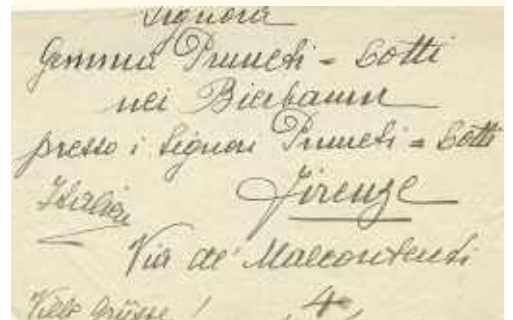 Signora
Gemma Pruneti-Lotti
nei Bierbaum
presso i Signori Pruneti-Lotti
Italien
Firenze
Via de' Malcontenti
4
Viele Grüsse!